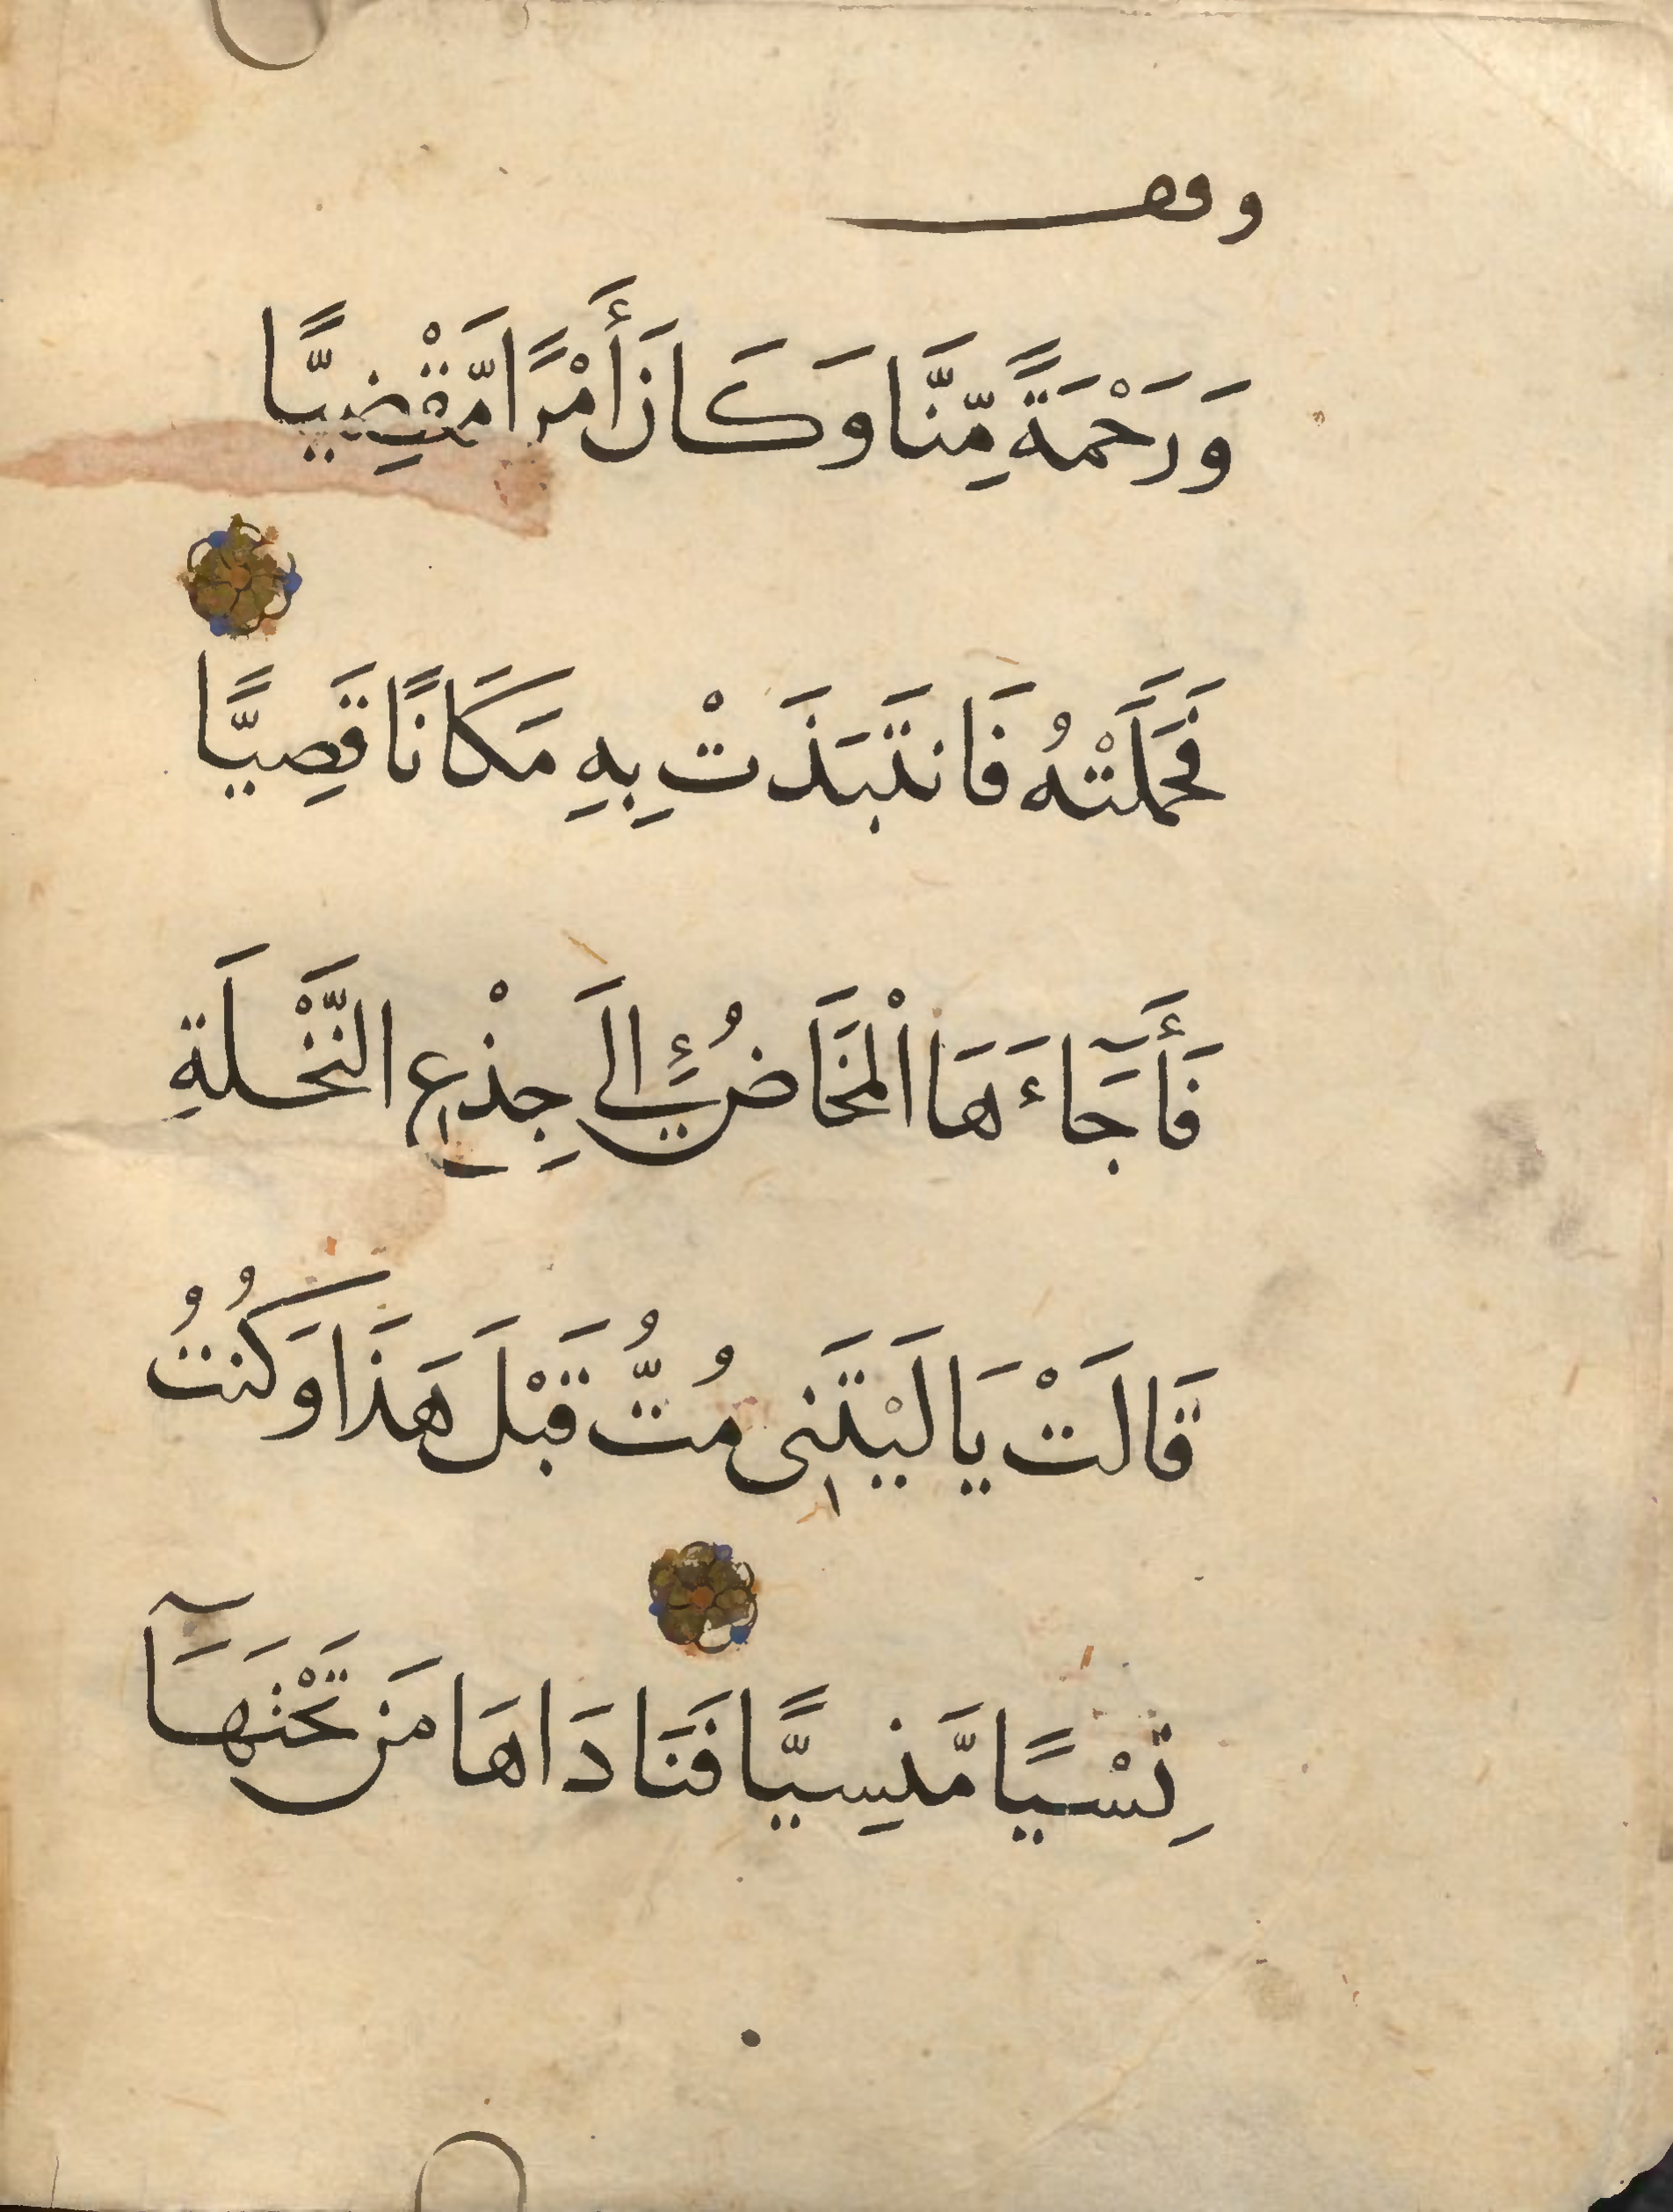 وقف
وَرَحْمَةً مِّنَّا وَكَانَ أَمْرًا مَّقْضِيًّا
فَحَمَلَتْهُ فَانتَبَذَتْ بِهِ مَكَانًا قَصِيًّا
فَأَجَآءَهَا الْمَخَاضُ إِلَى جِذْعِ النَّخْلَةِ
قَالَتْ يَا لَيْتَنِى مُتُّ قَبْلَ هَذَا وَكُنتُ
نِسْيًا مَّنسِيًّا فَنَادَاهَا مَن تَحْتَهَآ